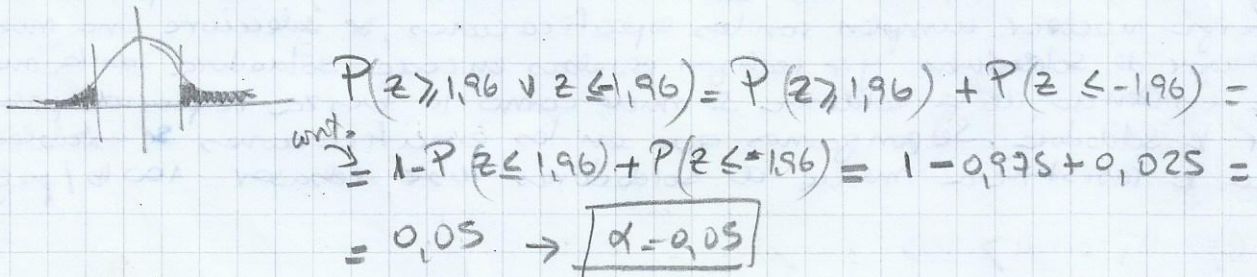 P(z ⩾ 1,96 ∨ z ≤ -1,96) = P(z ⩾ 1,96) + P(z ≤ -1,96) =
cont.
= 1 - P(z ≤ 1,96) + P(z ≤ -1,96) = 1 - 0,975 + 0,025 =
= 0,05 → α = 0,05